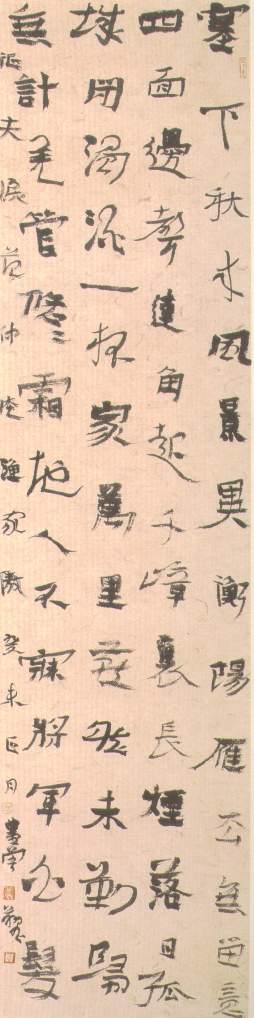 塞下秋来風景異衡陽雁去無留意
四面邊聲連角起千嶂裏長煙落日孤
城閉濁酒一杯家萬里燕然未勒歸
無計羌管悠〻霜地人不寐將軍白髮
征夫淚范仲淹漁家傲癸未月